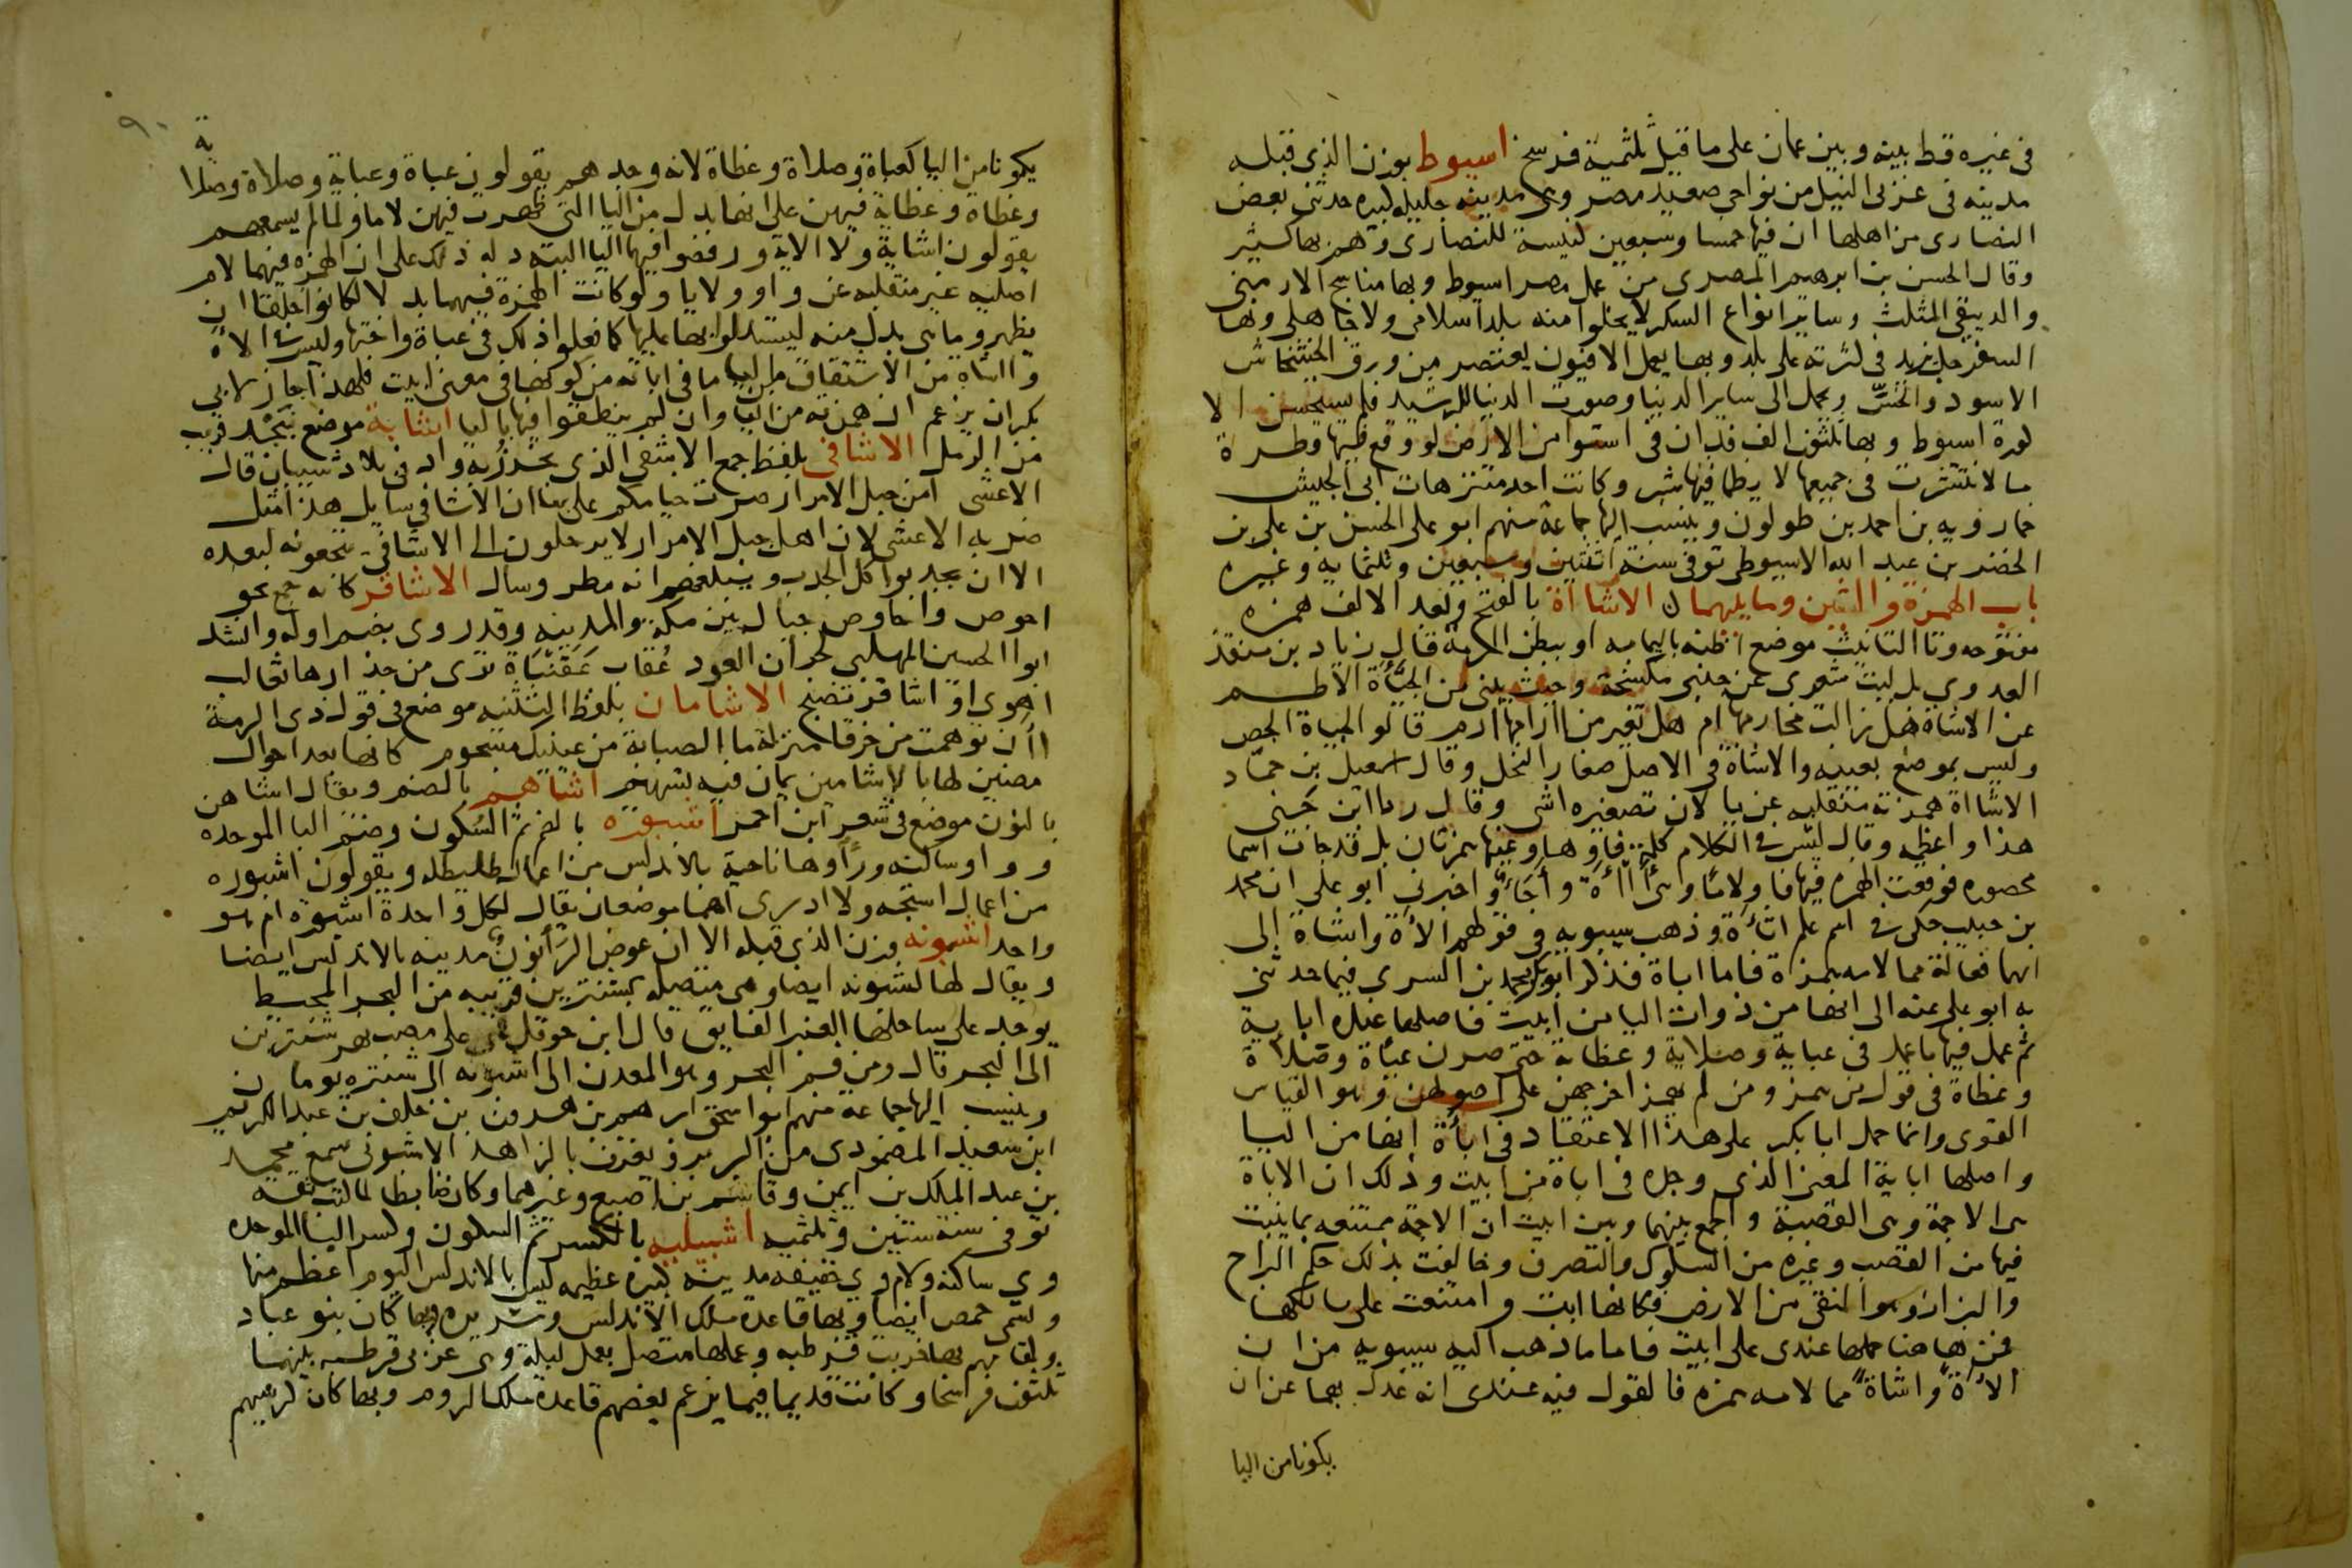 في غيره قط بينه وبين عمان على ما قيل ثلثمية فرسخ اسيوط بوزن الذي قبله
مدينه في غربي النيل من نواحي صعيد مصر وهي مدينه جليله كبيره حدثني بعض
النصارى من اهلها ان فيها خمسا وسبعين كنيسة للنصارى وهم بها كثير
وقال الحسن بن ابرهيم المصري من عمل مصر اسيوط وبها مناسج الارمني
والدبيقي المثلث وساير انواع السكر لا يخلوا منه بلد اسلامي ولا جاهلي وبها
السفرجل يزيد في كثرته على بلد وبها يعمل الافيون يعتصر من ورق الخشخاش
الاسود والخس ويحمل الى ساير الدنيا وصورت الدنيا للرشيد فلم يستحسن الا
كورة اسيوط وبها ثلثون الف فدان في استوا من الارض لو وقع فيها قطرة
ما لانتشرت في جميعها لا يظما فيها شبر وكانت احد متنزهات ابي الجيش
خمارويه بن احمد بن طولون وينسب اليها جماعة منهم ابو علي الحسن بن علي بن
الخضر بن عبد الله الاسيوطي توفي سنة اثنتين وسبعين وثلثمايه وغيره
باب الهمزة والشين وما يليهما الاشااة بالفتح وبعد الالف همزه
مفتوحه وتا التانيث موضع اظنه باليمامه او ببطن الرمة قال زياد بن منقذ
العدوي يل ليت شعري عن جنبي مكشحة وحيث يبنى من الحناة الاطم
عن الاشاة هل زالت مخارمها ام هل تغير من ارامها ارم قالو الجياة الجص
وليس بموضع بعينه والاشاة في الاصل صغار النخل وقال اسمعيل بن حماد
الاشااة همزته منقلبه عن يا لان تصغيره اشي وقال ردا ابن جني
هذا واعظمه وقال ليس في الكلام كلمة فاوها وعينها همزتان بل قد جات اسما
محصوره فوقعت الهمزه فيها فا ولاما وهي أاأة وأجاء واخبرني ابو علي ان محمد
بن حبيب حكى في اسم علم اتاءة وذهب سيبويه في قولهم الاءة واشاة الى
انهما فعالة مما لامه همزة فاما اباة فذكر ابو بكر محمد بن السري فيما حدثني
به ابو علي عنه الى انها من ذوات اليا من ابيت فاصلها عنده اباية
ثم عمل فيها ما عمل في عباية وصلاية وعظاية حتى صرن عباة وصلاة
وعظاة في قول من همز ومن لم يهمز اخرجهن على اصولهن وهو القياس
القوى وانما حمل ابا بكر على هذا الاعتقاد في اباءة انها من اليا
واصلها اباية المعنى الذي وجده في اباة من ابيت وذلك ان الاباة
هي الاجمة وهي القصبة والجمع بينهما وبين ابيت ان الاجمة ممتنعه بما ينبت
فيها من القصب وغيره من السلوك والتصرف وخالفت بذلك حكم البراح
والبراز وهو النقي من الارض فكانها ابت وامتنعت على سالكها
فمن هاهنا حملها عندي على ابيت فاما ما ذهب اليه سيبويه من ان
الاءة واشاة مما لامه همزه فالقول فيه عندي انه عدل بهما عن ان
يكونا من اليا
٩٠
يكونا من اليا كعباة وصلاة وعظاة لانه وجدهم يقولون عباة وعباية وصلاة وصلاية
وعظاة وعظاية فيهن على انها بدل من اليا التي ظهرت فيهن لاما ولما لم يسمعهم
يقولون اشاية ولا الاية ورفضوا فيهما اليا البتة دله ذلك على ان الهمزه فيهما لام
اصليه غير منقلبه عن واو ولا يا ولو كانت الهمزة فيهما بدلا لكانوا خلقا ان
يظهروا ما هي بدل منه ليستدلوا بها عليها كما فعلوا ذلك في عباة واختها وليس في الاة
واشاة من الاشتقاق من اليا ما في اباة من كونها في معنى ابيت فلهذا جاز لابي
بكر ان يزعم ان همزته من اليا وان لم ينطقوا فيها باليا اشاية موضع بنجد قريب
من الرمل الاشافي بلفظ جمع الاشفى الذي يخرز به واد في بلاد شيبان قال
الاعشى امن جبل الامرار صرت خيامكم على نبا ان الاشافي سايل هذا مثل
ضربه الاعشى لان اهل جبل الامرار لا يرحلون الى الاشافي ينتجعونه لبعده
الا ان يجدبوا كل الجدب ويبلغهم انه مطر وسال الاشاقر كانه جمع نحو
احوص واحاوص جبال بين مكة والمدينه وقد روى بضم اوله وانشد
ابوا الحسين المهلبي لجران العود عقاب عقنباة ترى من حذارها ثعالب
اهوى او اشاقر تضبح الاشامان بلفظ التثنيه موضع في قول ذي الرمة
اان توهمت من خرقا منزلة ما الصبابة من عينيك مسجوم كانها بعد احوال
مضين لها بالاشامين يمان فيه تسهيم اشاهم بالضم ويقال اشاهن
بالنون موضع في شعر ابن احمر اشبورة بالضم ثم السكون وضم البا الموحده
وواو ساكنه ورا وها ناحية بالاندلس من اعمال طليطله ويقولون اشبوره
من اعمال استجه ولا ادري اهما موضعان يقال لكل واحدة اشبورة ام هو
واحد اشبونه بوزن الذي قبله الا ان عوض الرأ نون مدينه بالاندلس ايضا
ويقال لها لشبونه ايضا وهي متصله بشنترين قريبه من البحر المحيط
يوجد على ساحلها العنبر الفايق قال ابن حوقل هي على مصب نهر شنترين
الى البحر قال ومن فم البحر وهو المعدن الى اشبونه الى شنتره يومان
وينسب اليها جماعة منهم ابوا اسحق ابرهيم بن هرون بن خلف بن عبد الكريم
ابن سعيد المصمودي من البربر ويعرف بالزاهد الاشبوني سمع محمد
بن عبد الملك بن ايمن وقاسم بن اصبع وغيرهما وكان ضابطا لما كتب ثقه
توفي سنة ستين وثلثميه اشبيليه بالكسر ثم السكون وكسر البا الموحده
وي ساكنه ولام وي خفيفه مدينه كبيره عظيمه ليس بالاندلس اليوم اعظم منها
وتسمى حمص ايضا وبها قاعدة ملك الاندلس وسريره وبها كان بنو عباد
ولمقامهم بها خربت قرطبه وعملها متصل بعمل لبلة وهي غربي قرطبه بينهما
ثلثون فرسخا وكانت قديما فيما يزعم بعضهم قاعدة ملك الروم وبها كان كرسيهم